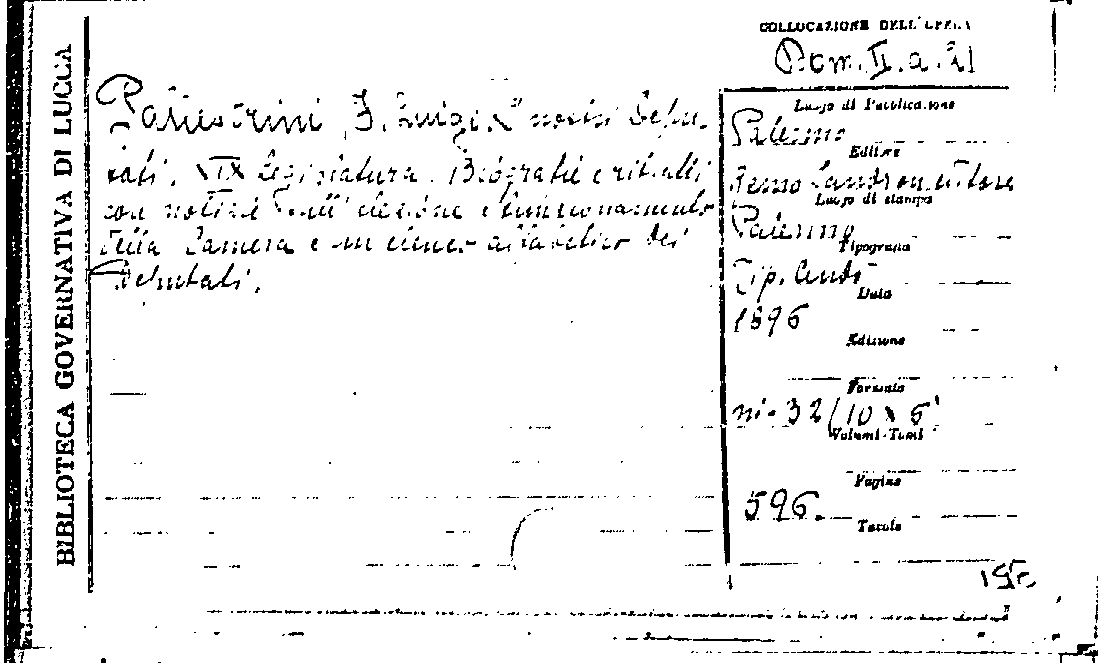 BIBLIOTECA GOVERNATIVA DI LUCCA
COLLOCAZIONE DELL'OPERA
Rom. II. a. 21
Pallestrini, F. Luigi. I nostri Depu-
tati. XIX Legislatura. Biografie e ritratti
con notizie sull' elezione e funzionamento
della Camera e un elenco alfabetico dei
Deputati.
Luogo di Pubblicazione
Palermo
Editore
Remo Sandron editore
Luogo di stampa
Palermo
Tipografia
Tip.
Data
1896
Edizione
Formato
in-32 (10 x 6
Volumi-Tomi
Pagine
596.
Tavole